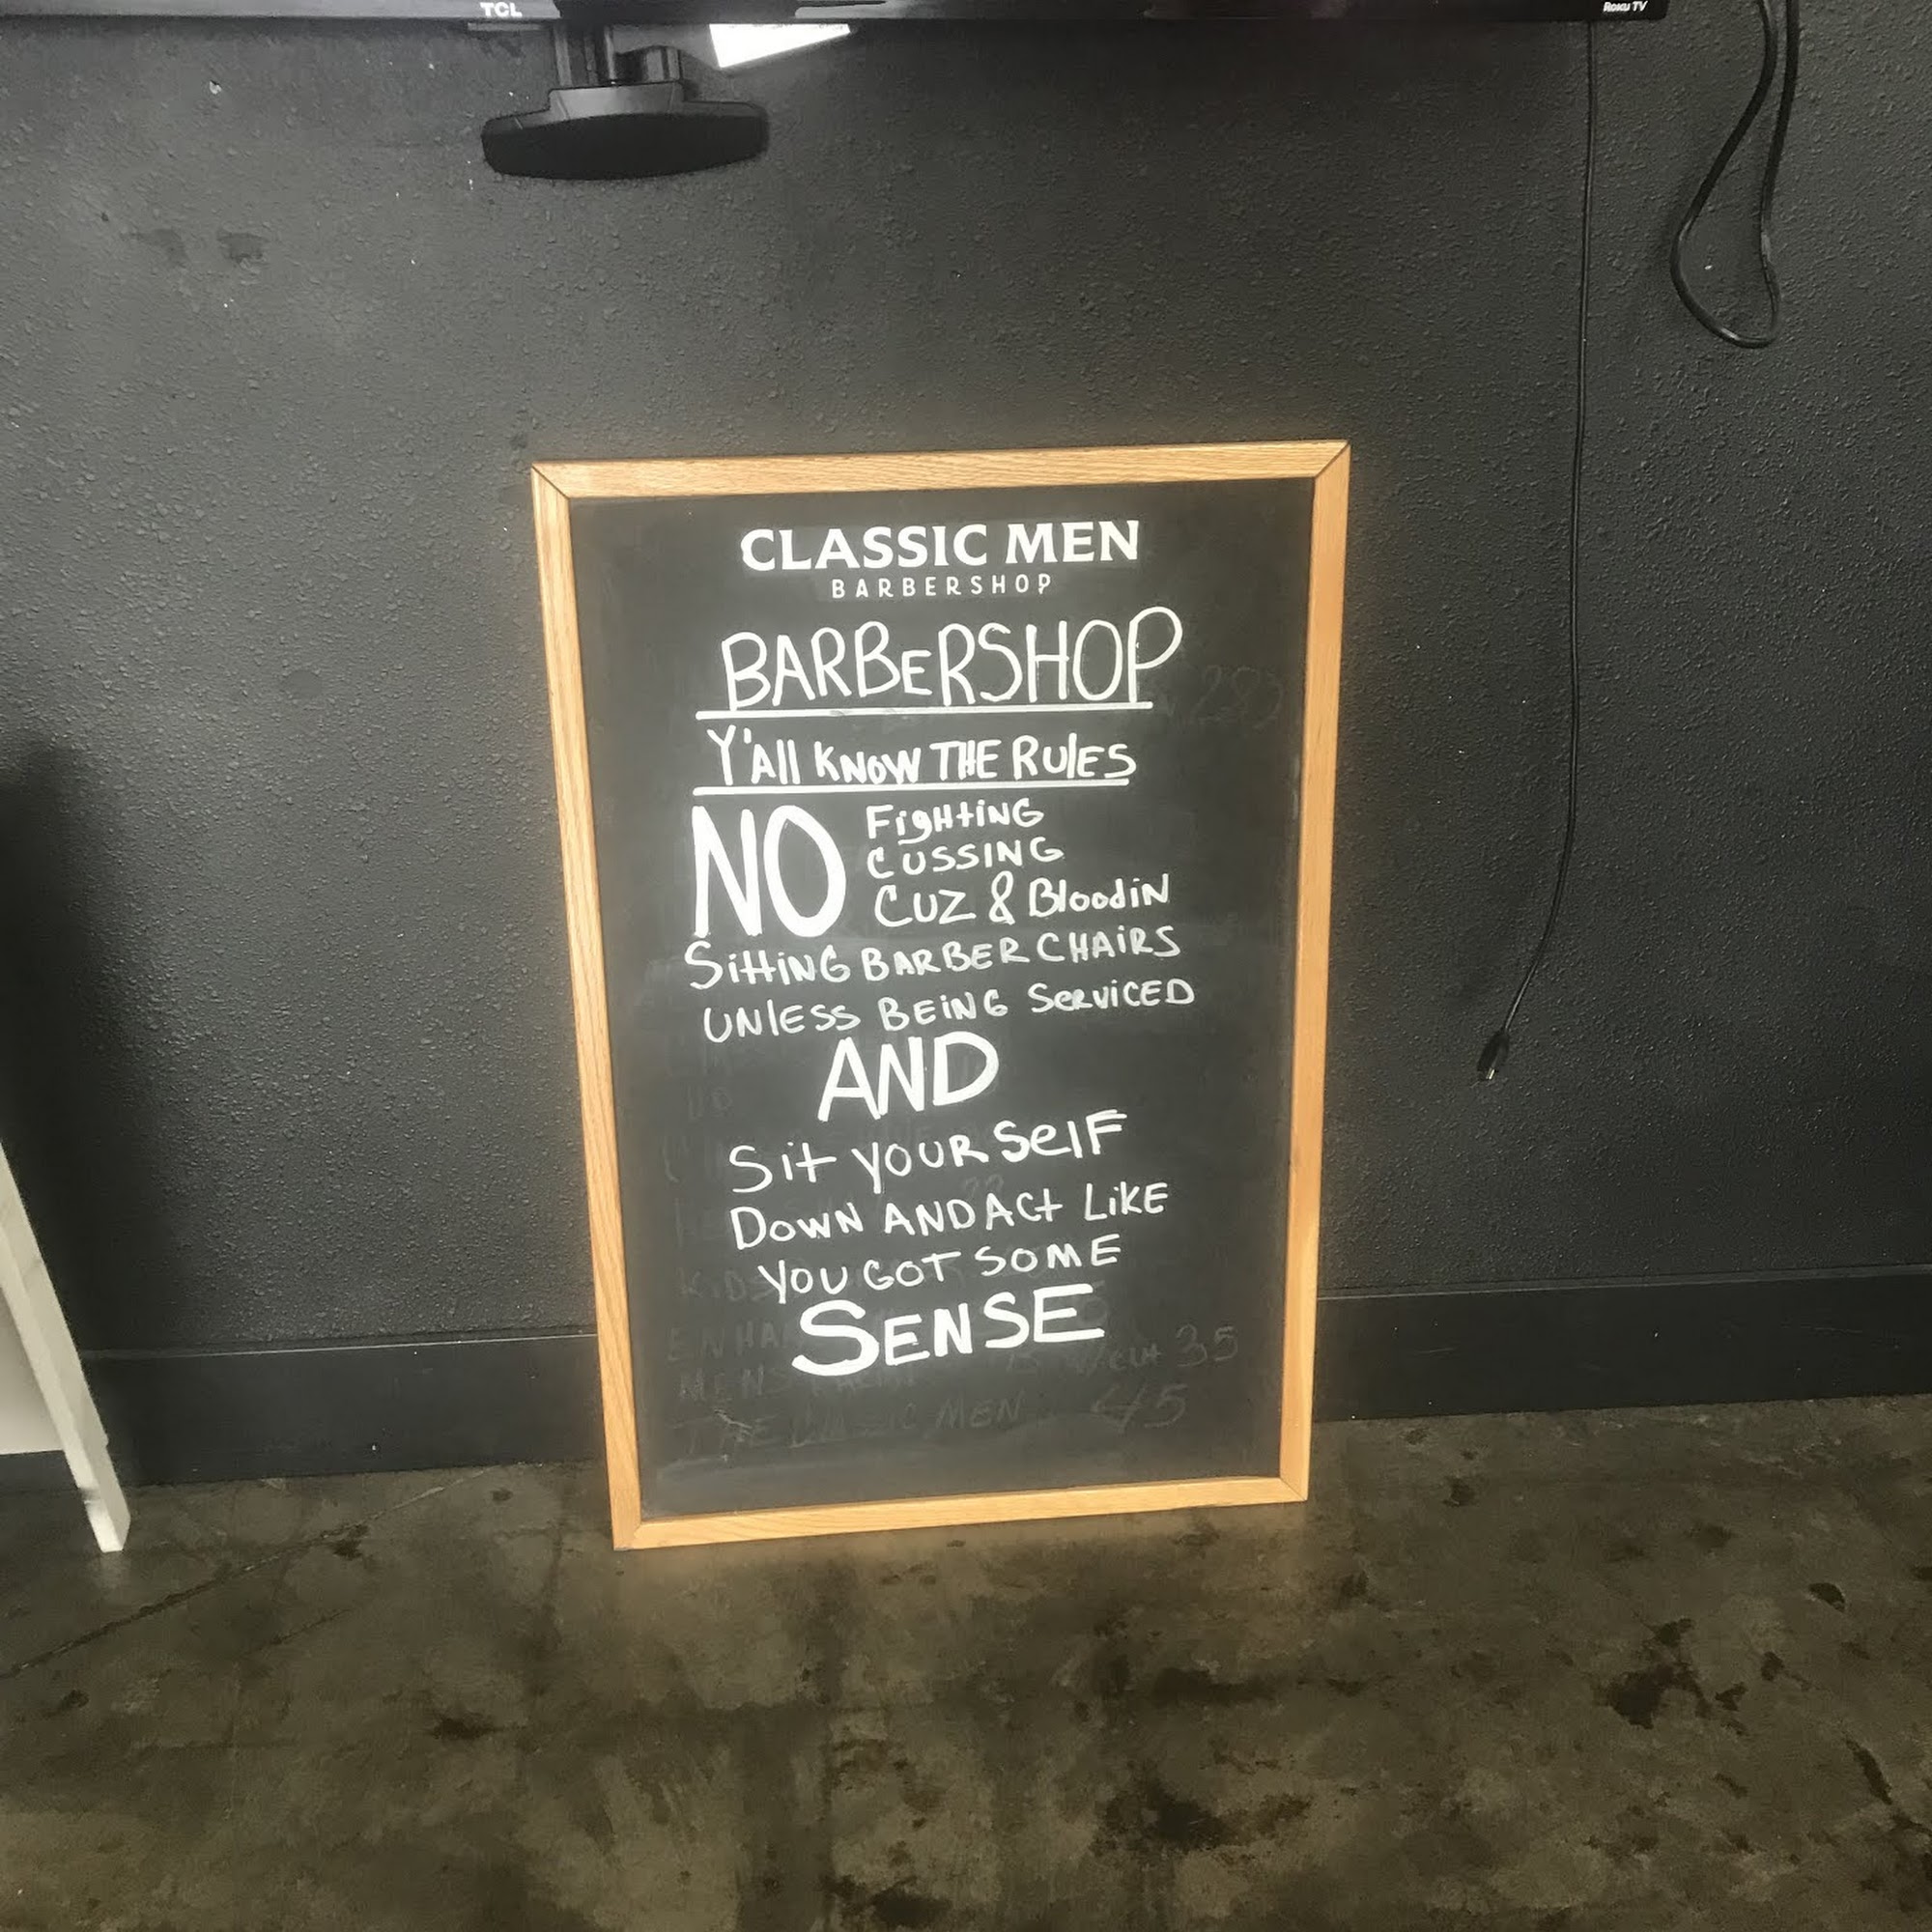 TCL
Roku TV
CLASSIC MEN
BARBERSHOP
BARBERSHOP
Y'All KNOW THE RUlES
NO Fighting
CUSSING
CUZ & BloodiN
SittiNG BARBER CHAiRS
UNlESS BEiNG SeRViCED
AND
Sit YOUR SelF
DOWN AND ACt LiKE
YOU GOT SOME
SENSE
KIDS
35
THE CLASSIC MEN 45